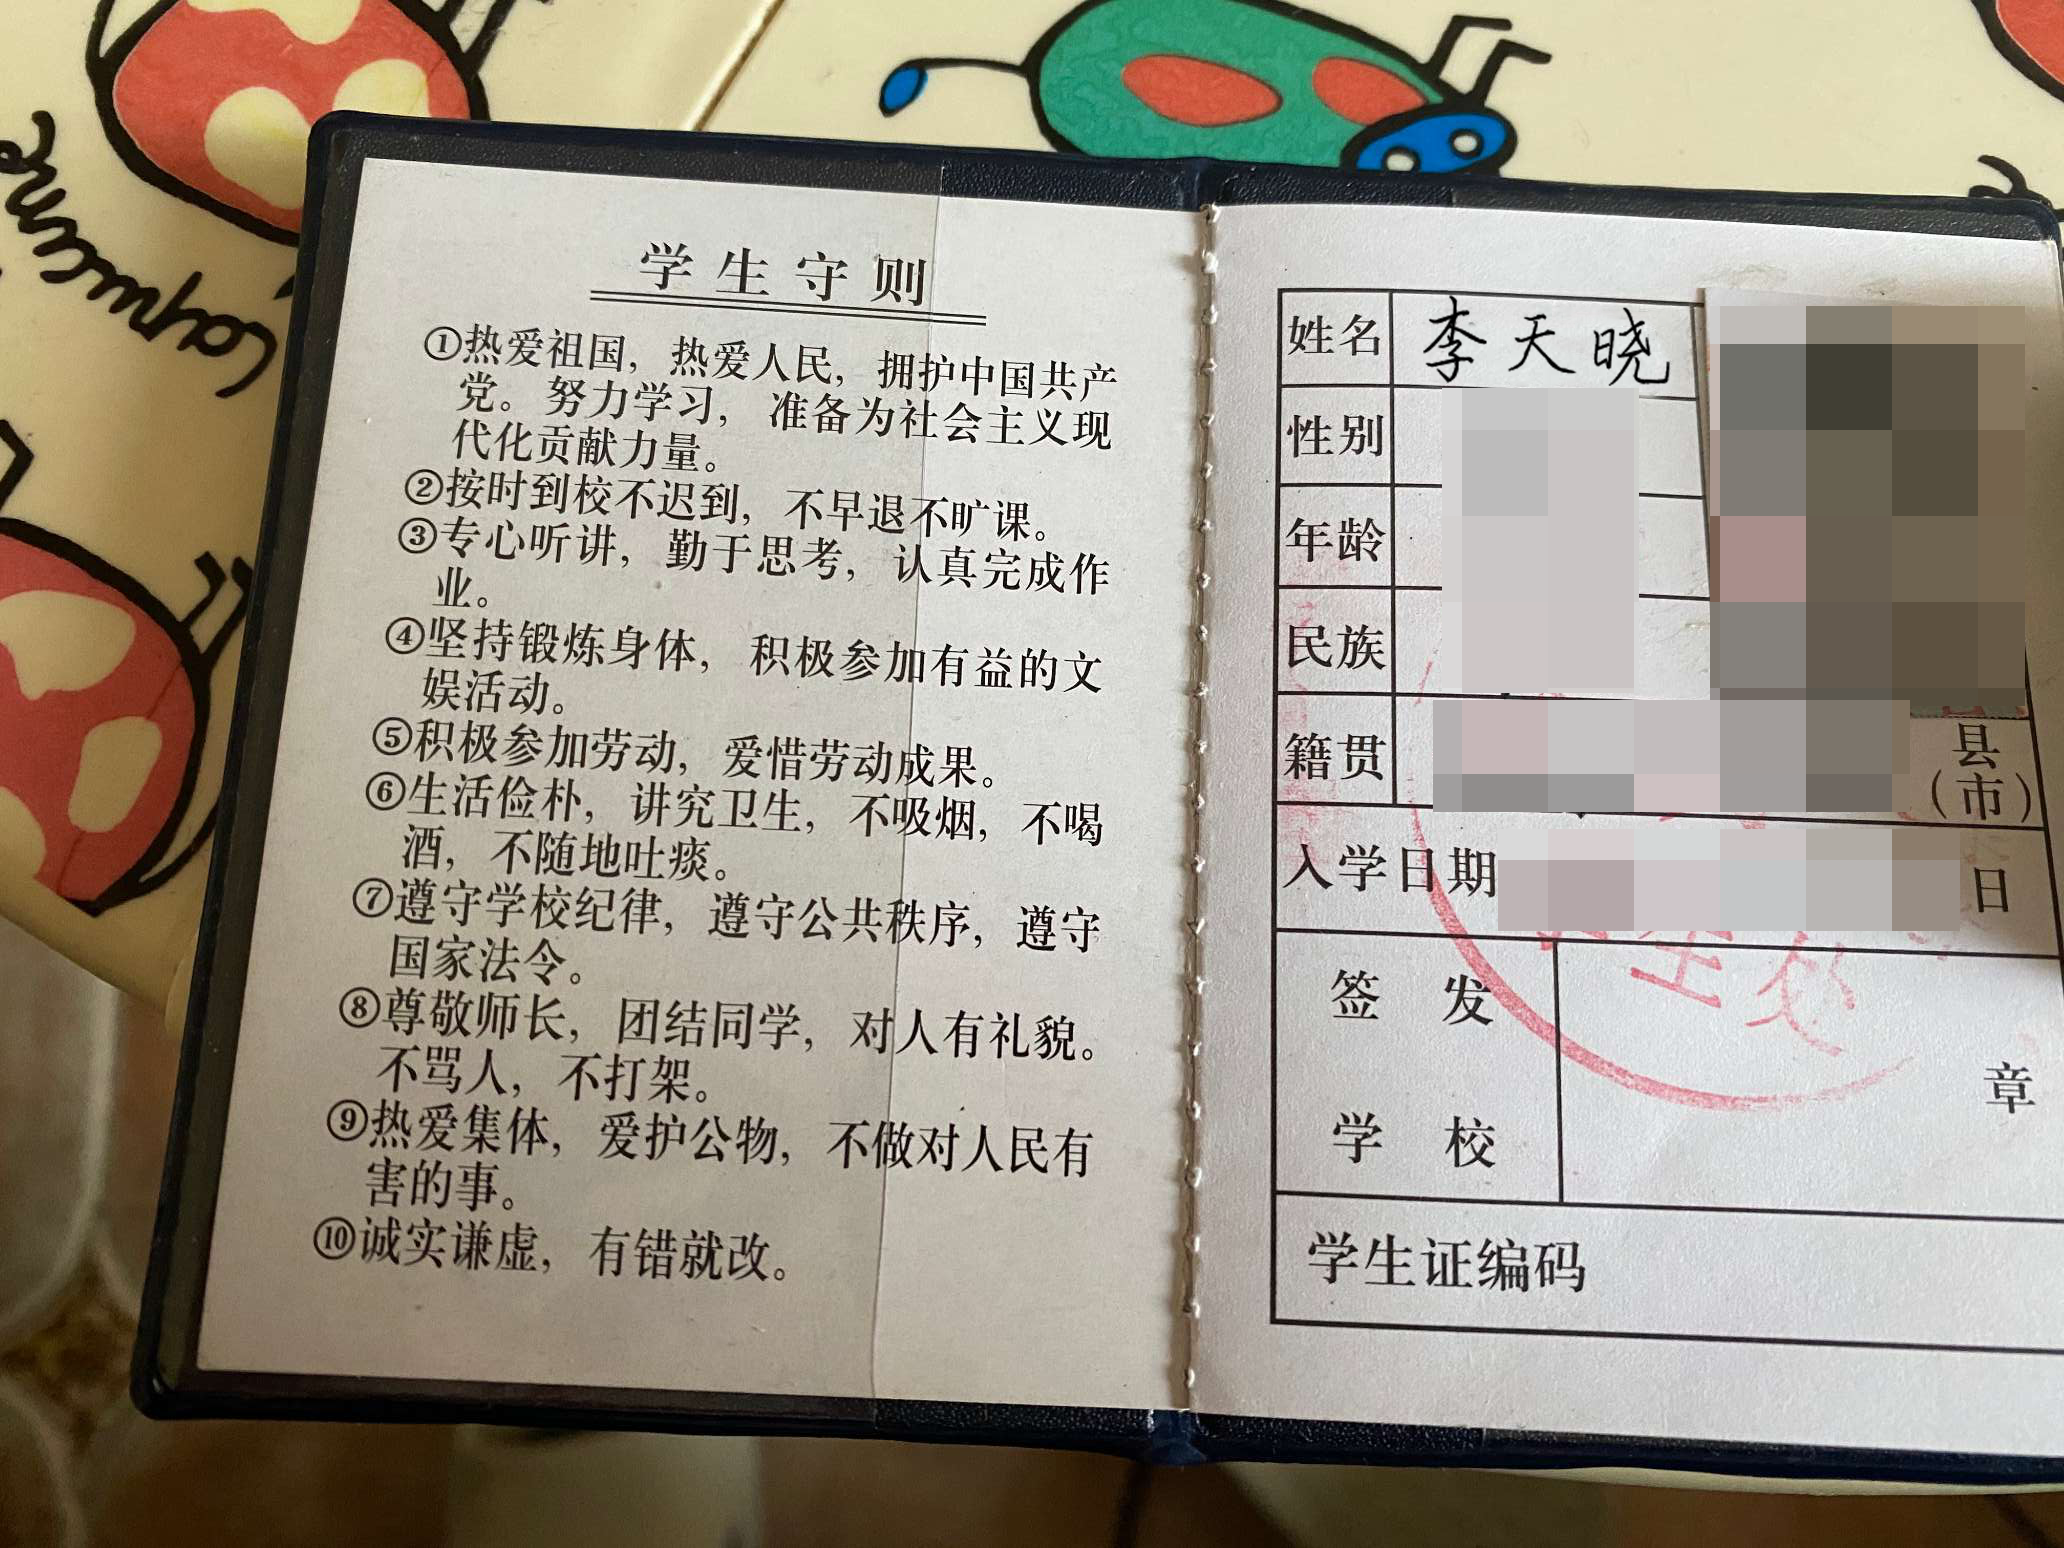 学生守则
①热爱祖国，热爱人民，拥护中国共产
党。努力学习，准备为社会主义现
代化贡献力量。
②按时到校不迟到，不早退不旷课。
③专心听讲，勤于思考，认真完成作
业。
④坚持锻炼身体，积极参加有益的文
娱活动。
⑤积极参加劳动，爱惜劳动成果。
⑥生活俭朴，讲究卫生，不吸烟，不喝
酒，不随地吐痰。
⑦遵守学校纪律，遵守公共秩序，遵守
国家法令。
⑧尊敬师长，团结同学，对人有礼貌。
不骂人，不打架。
⑨热爱集体，爱护公物，不做对人民有
害的事。
⑩诚实谦虚，有错就改。
姓名 李天晓
性别
年龄
民族
籍贯 县
（市）
入学日期 日
签发
章
学校
学生证编码